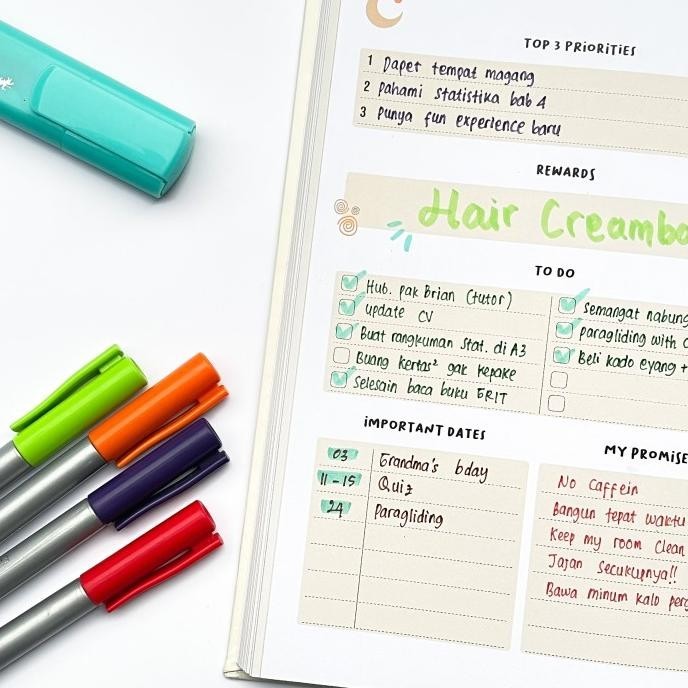 TOP 3 PRIORITIES
1 Dapet tempat magang
2 pahami statistika bab 4
3 Punya fun experience baru
REWARDS
Hair Creamba
TO DO
Hub. pak Brian (tutor)
update CV
Buat rangkuman Stat. di A3
Buang kertas² gak kepake
Selesain baca buku
Semangat nabung
paragliding with
Beli kado eyang +
IMPORTANT DATES
03 Grandma's bday
11-15 Quiz
24 Paragliding
MY PROMISE
No Caffein
Bangun tepat waktu
Keep my room Clean
Jajan Secukupnya!!
Bawa minum kalo perg